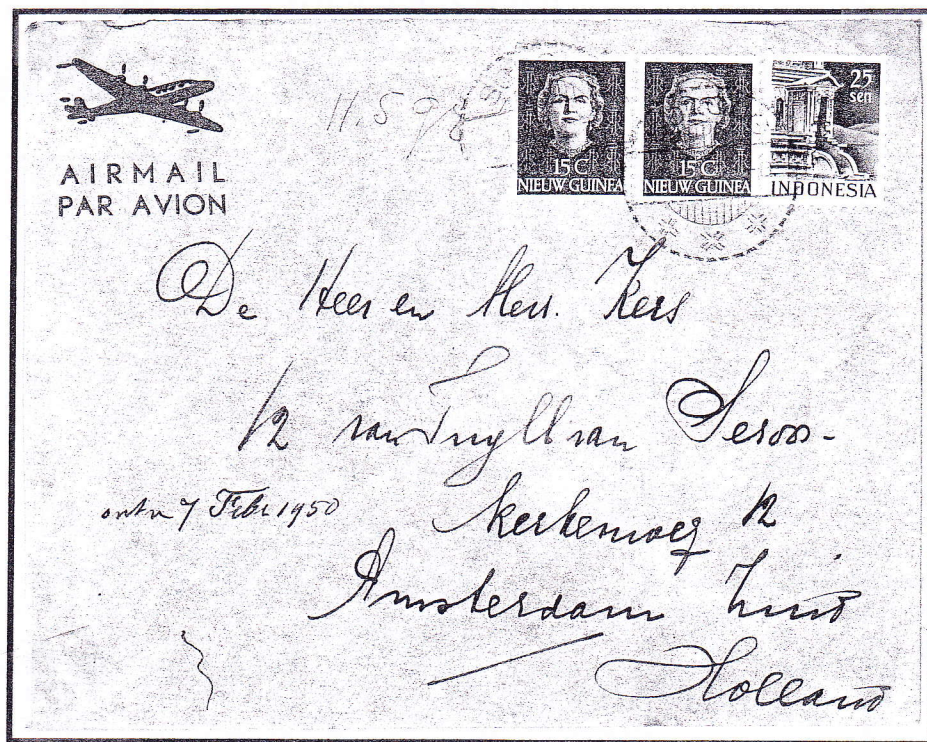 AIRMAIL
PAR AVION
15C
NIEUW GUINEA
15C
NIEUW GUINEA
25
sen
INDONESIA
De Heer en Mevr. Kers
12 van Tuyll van Seroos-
kerkenweg 12
ontv 7 Febr 1950
Amsterdam Zuid
Holland